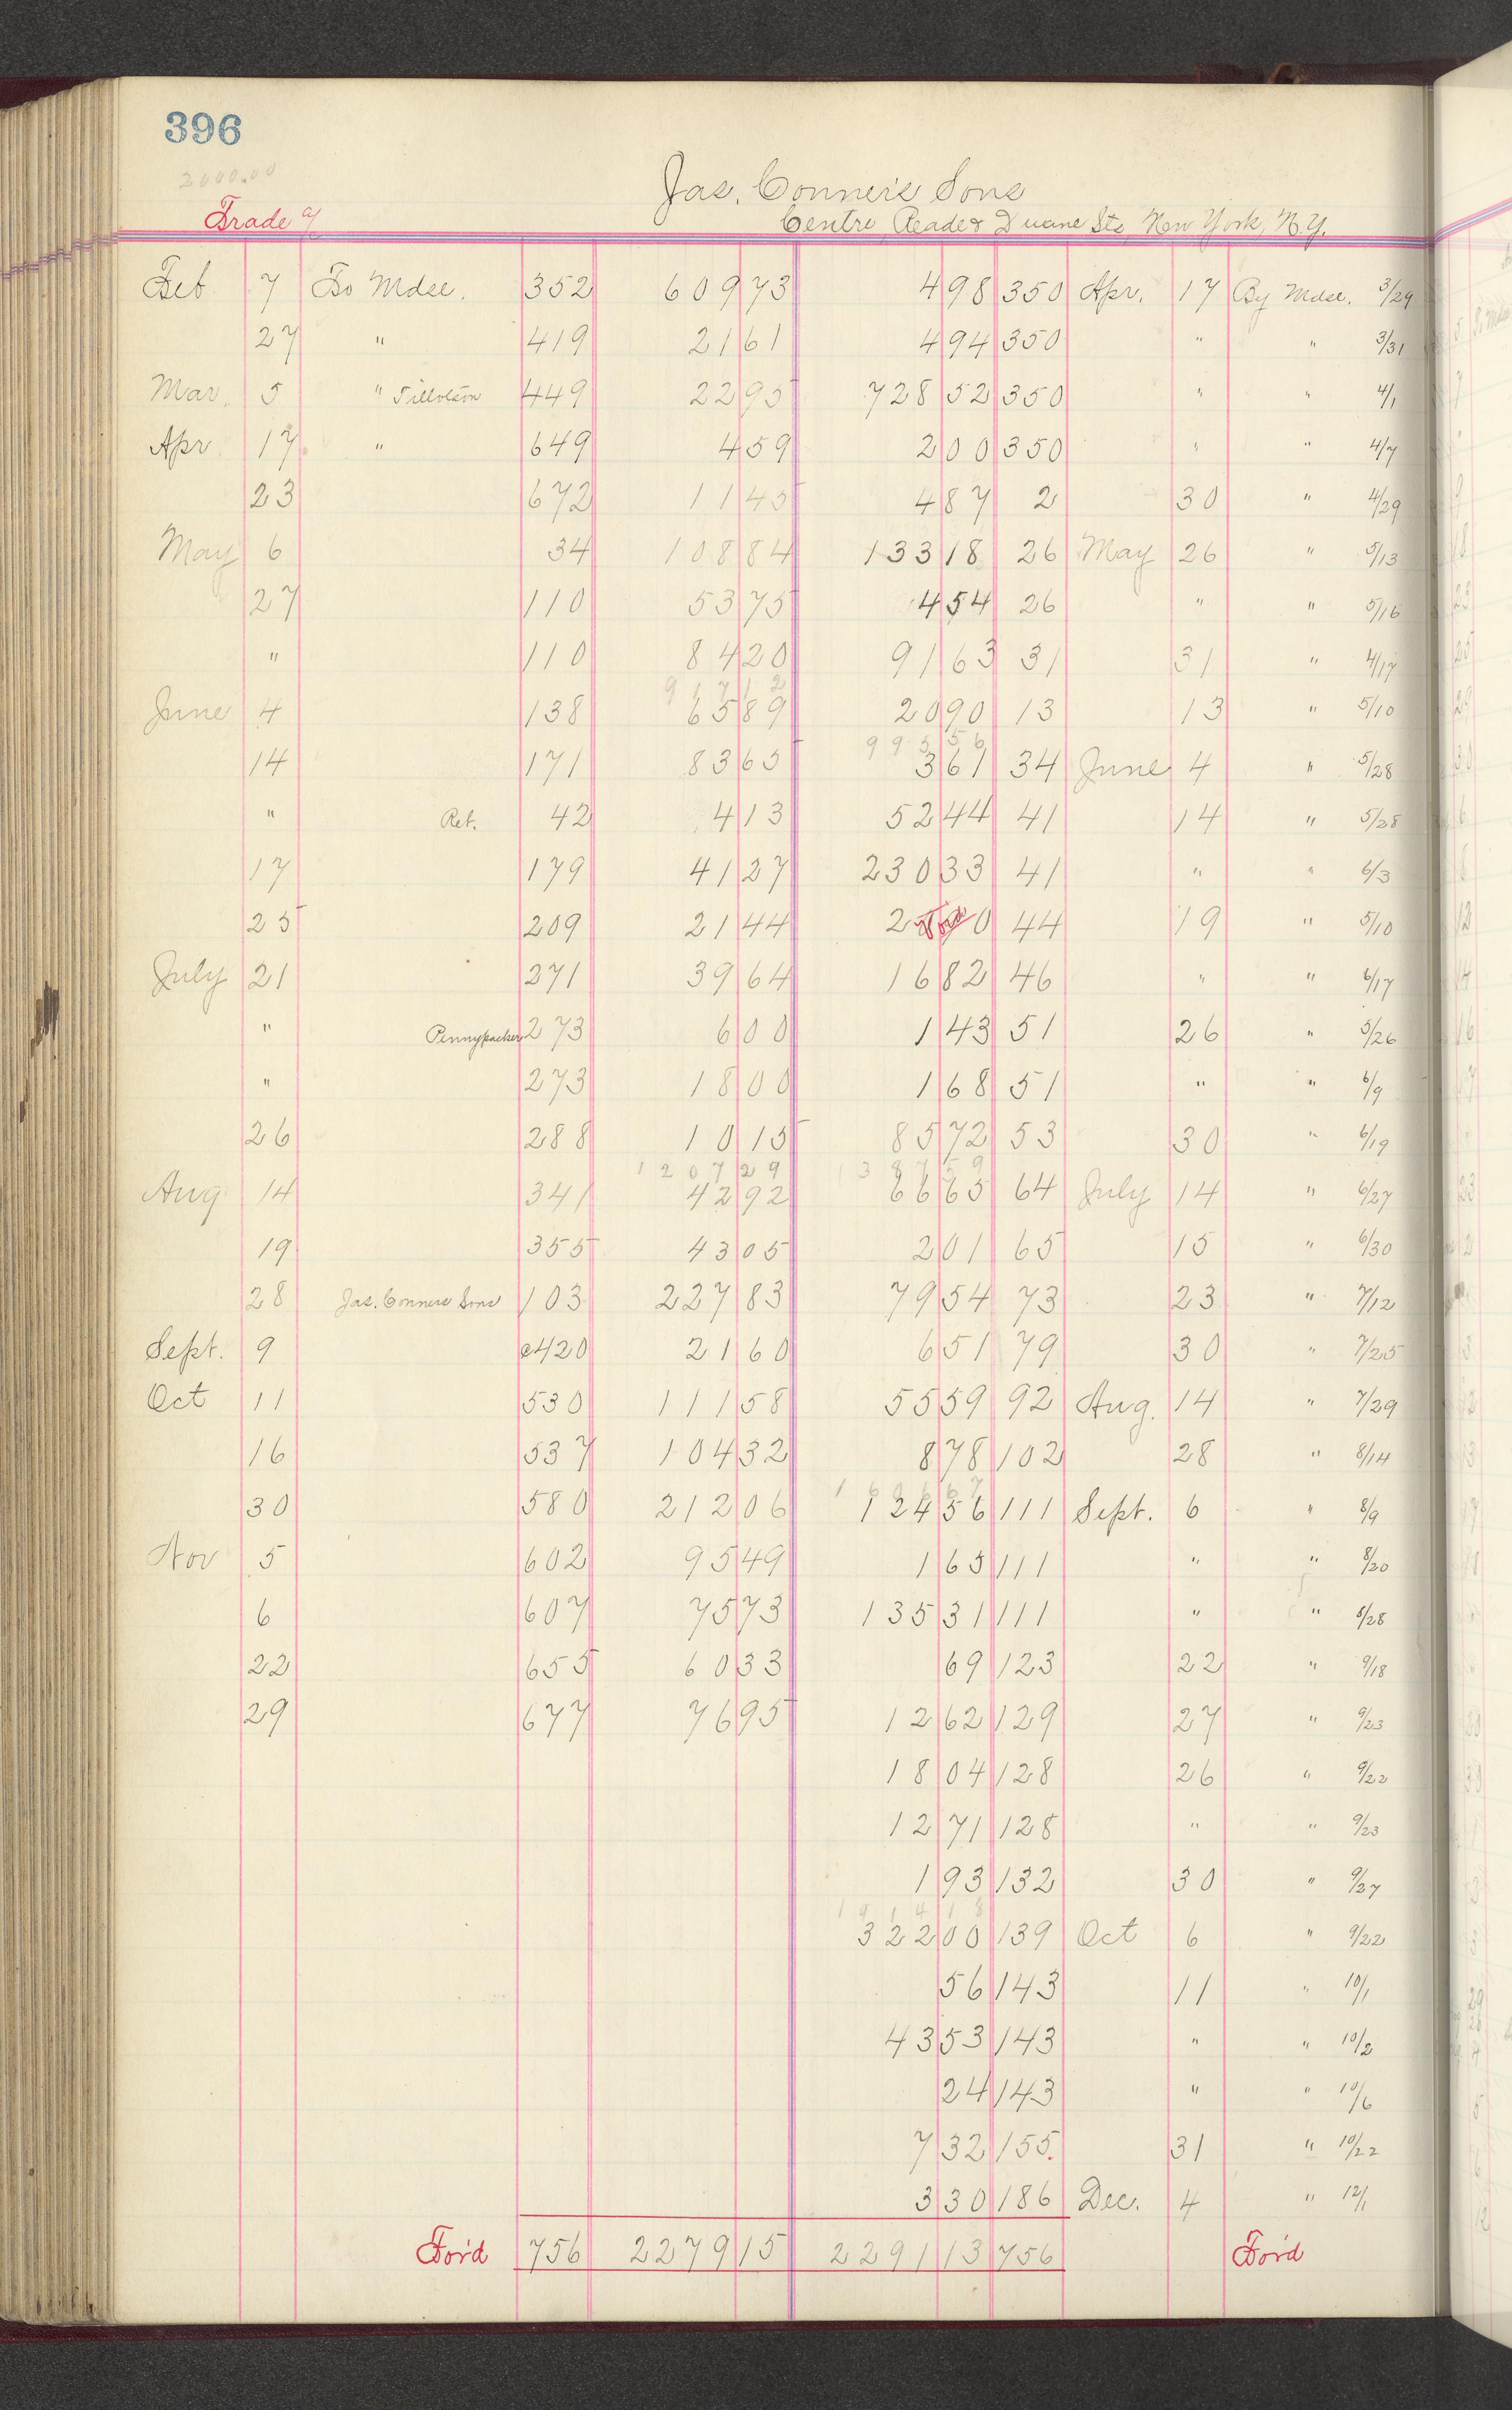 396
2000.00
Jas. Conner's Sons
Trade a/c Centre, Reade & Duane Sts, New York, N.Y.
Feb 7 To Mdse. 352 609 73 4 98 350 Apr. 17 By Mdse. 3/29
27 " 419 21 61 4 94 350 " " 3/31
Mar. 5 " Tillotson 449 22 95 728 52 350 " " 4/1
Apr 17 " 649 4 59 2 00 350 " " 4/7
23 672 11 45 4 87 2 30 " 4/29
May 6 34 108 84 133 18 26 May 26 " 5/13
27 110 53 75 4 54 26 " " 5/16
" 110 84 20 91 63 31 31 " 4/17
9 1 7 1 2
June 4 138 65 89 20 90 13 13 " 5/10
9 9 5 5 6
14 171 83 65 3 61 34 June 4 " 5/28
" Ret. 42 4 13 52 44 41 14 " 5/28
17 179 41 27 230 33 41 " " 6/3
25 209 21 44 2 Void 0 44 19 " 5/10
July 21 271 39 64 16 82 46 " " 6/17
" Pennypacker 273 6 00 1 43 51 26 " 5/26
" 273 18 00 1 68 51 " " 6/9
26 288 10 15 85 72 53 30 " 6/19
1 2 0 7 2 9 1 3 8 7 5 9
Aug 14 341 42 92 66 65 64 July 14 " 6/27
19 355 43 05 2 01 65 15 " 6/30
28 Jas. Conners Sons 103 227 83 79 54 73 23 " 7/12
Sept. 9 420 21 60 6 51 79 30 " 7/25
Oct 11 530 111 58 55 59 92 Aug. 14 " 7/29
16 537 104 32 8 78 102 28 " 8/14
30 580 212 06 124 56 111 Sept. 6 " 8/9
Nov 5 602 95 49 1 65 111 " " 8/20
6 607 75 73 135 31 111 " " 8/28
22 655 60 33 69 123 22 " 9/18
29 677 76 95 12 62 129 27 " 9/23
18 04 128 26 " 9/22
12 71 128 " " 9/23
1 93 132 30 " 9/27
1 9 1 4 1 8
322 00 139 Oct 6 " 9/22
56 143 11 " 10/1
43 53 143 " " 10/2
24 143 " " 10/6
7 32 155 31 " 10/22
3 30 186 Dec. 4 " 12/1
For'd 756 2279 15 2291 13 756 For'd